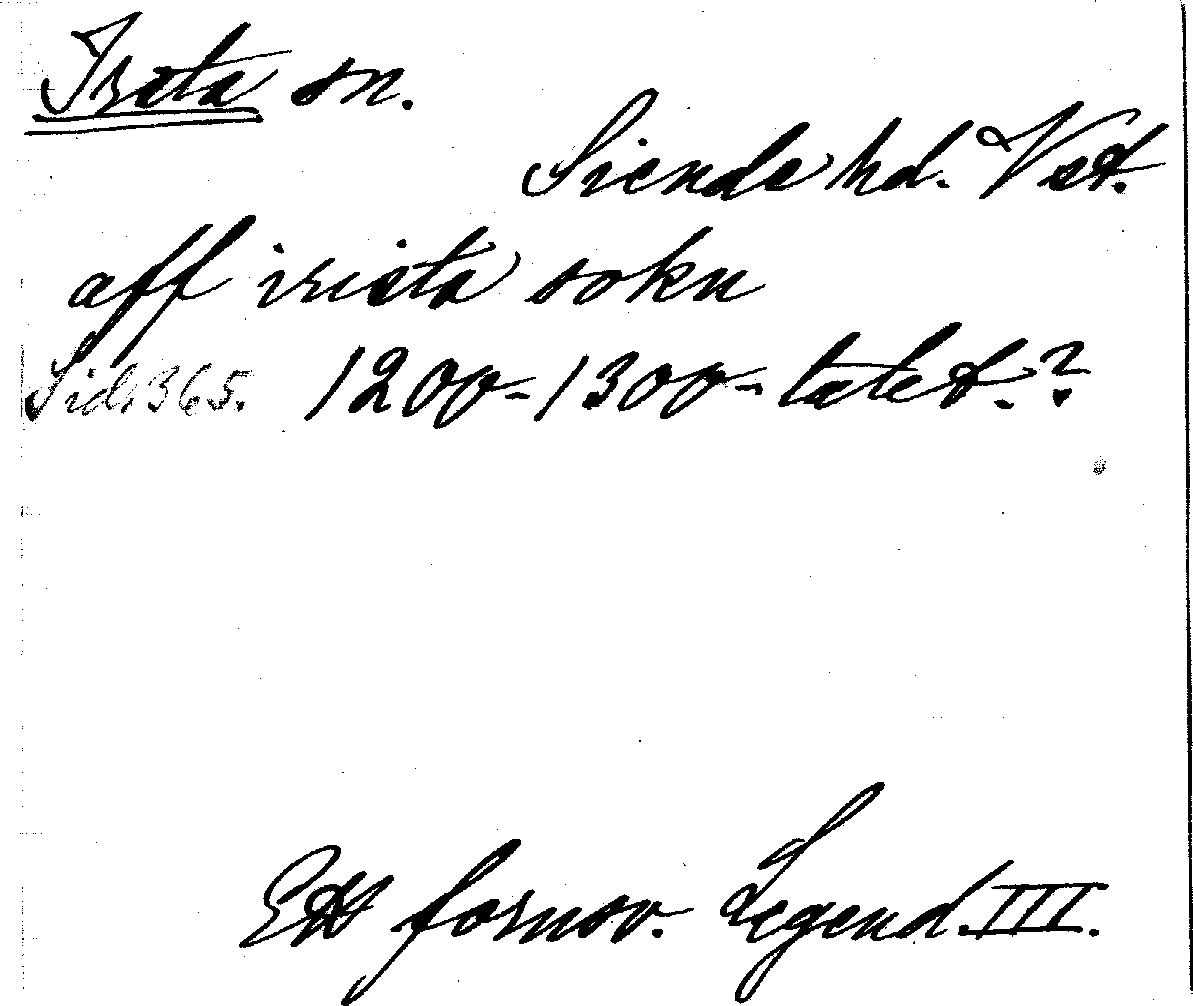 Irsta sn.
Siende hd. Vst.
aff irista sokn
Sid. 365. 1200-1300-talet.?
Ett fornsv. Legend. III.